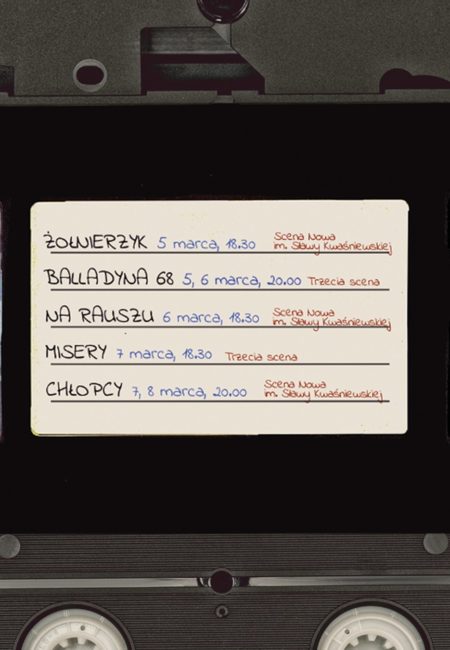 ŻOŁNIERZYK 5 marca, 18.30 Scena Nowa
im. Sławy Kwaśniewskiej
BALLADYNA 68 5, 6 marca, 20.00 Trzecia scena
NA RAUSZU 6 marca, 18.30 Scena Nowa
im. Sławy Kwaśniewskiej
MISERY 7 marca, 18.30 Trzecia scena
CHŁOPCY 7, 8 marca, 20.00 Scena Nowa
im. Sławy Kwaśniewskiej